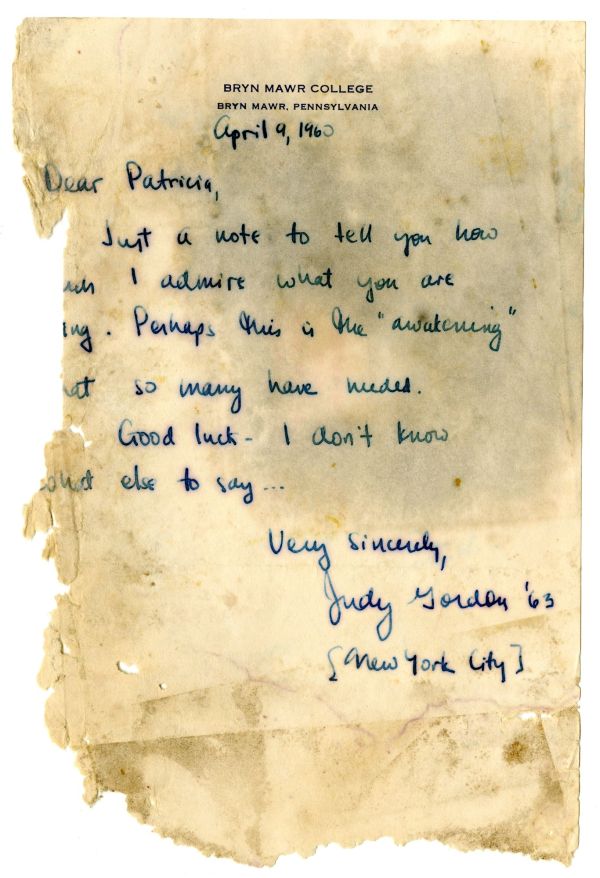 BRYN MAWR COLLEGE
BRYN MAWR, PENNSYLVANIA
April 9, 1960
Dear Patricia,
Just a note to tell you how
uch I admire what you are
ing. Perhaps this is the "awakening"
at so many have needed.
Good luck - I don't know
what else to say...
Very sincerely,
Judy Gordon '63
[New York City]